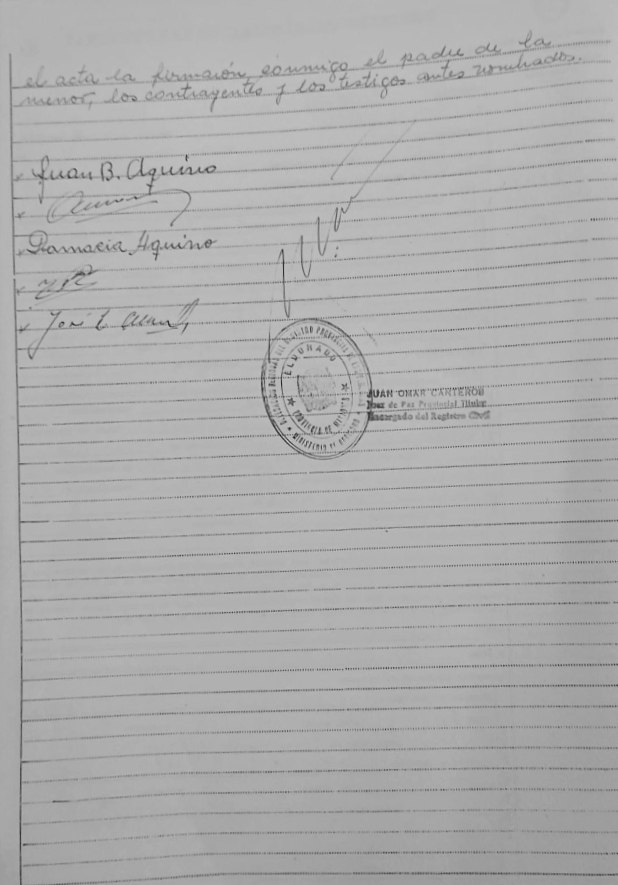 el acta la firmaron, conmigo el padre de la
menor, los contrayentes y los testigos antes nombrados.
Juan B. Aquino
Damacia Aquino
José
ELDORADO
PROVINCIA DE MISIONES
JUAN OMAR CANTEROS
Juez de Paz Provincial Titular
Encargado del Registro Civil